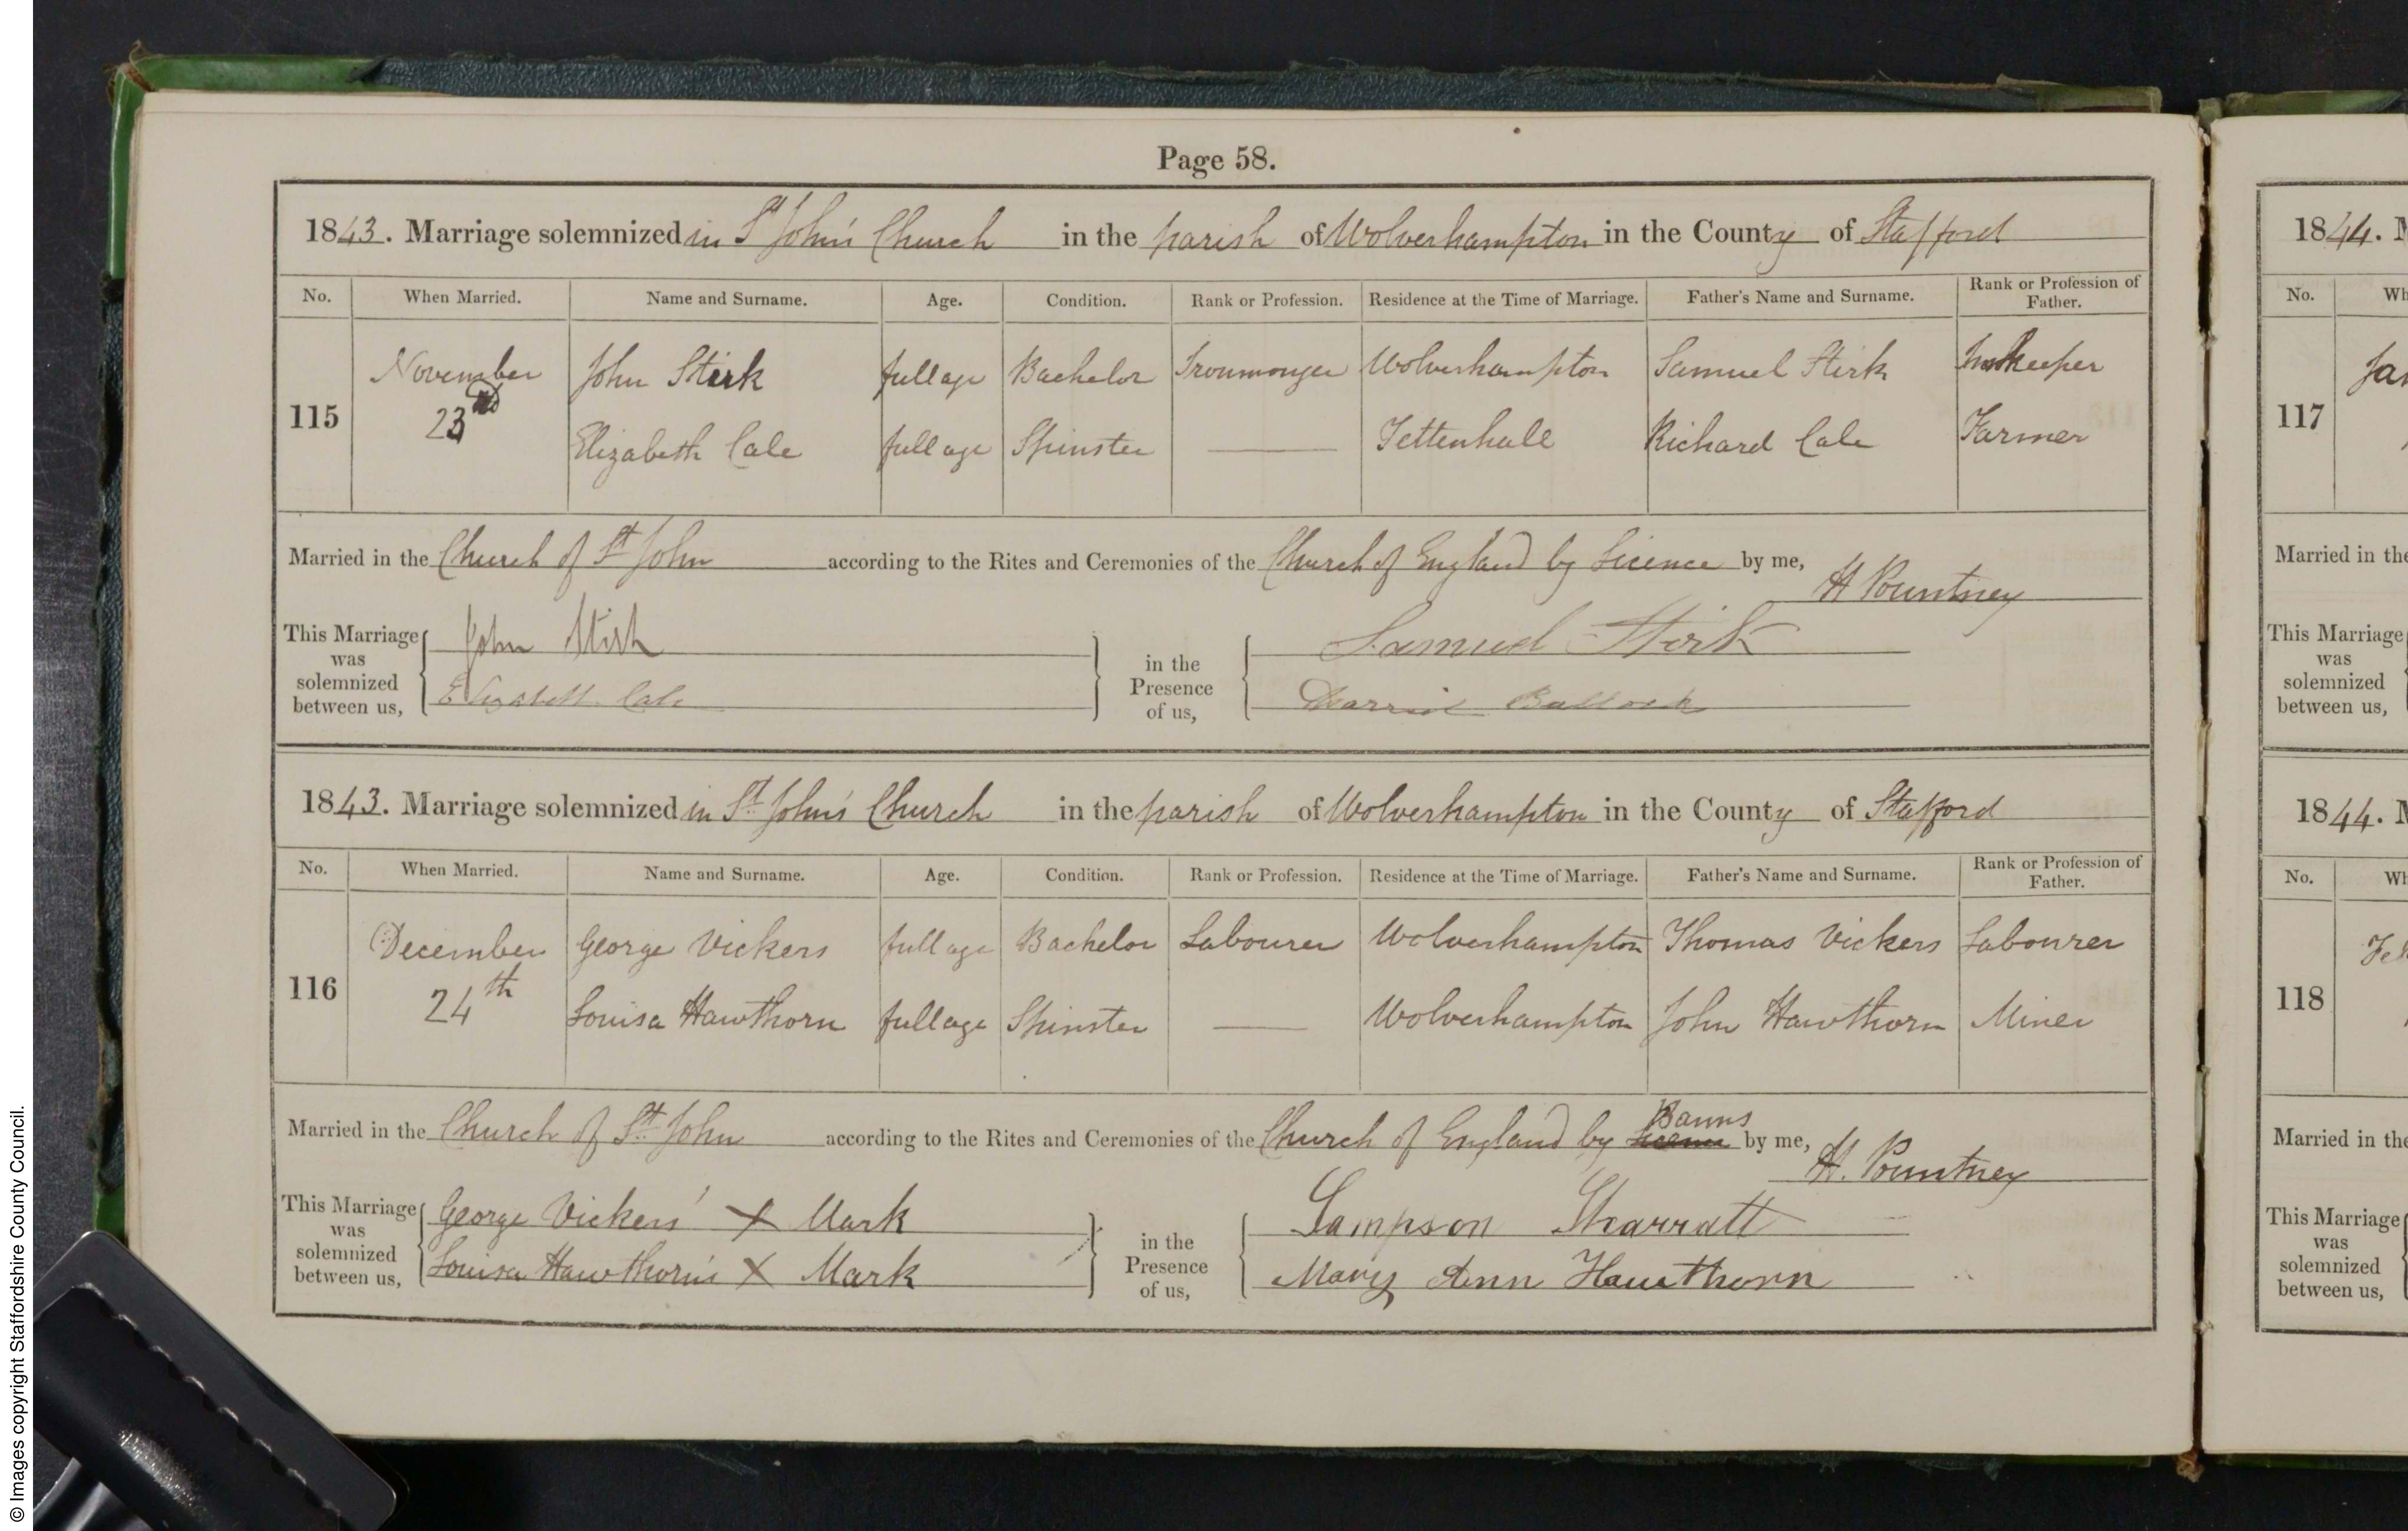 Page 58.
1843. Marriage solemnized in St John's Church in the parish of Wolverhampton in the County of Stafford
No. When Married. Name and Surname. Age. Condition. Rank or Profession. Residence at the Time of Marriage. Father's Name and Surname. Rank or Profession of Father.
115 November 23rd John Stirk full age Bachelor Ironmonger Wolverhampton Samuel Stirk Innkeeper
Elizabeth Cale full age Spinster Tettenhall Richard Cale Farmer
Married in the Church of St John according to the Rites and Ceremonies of the Church of England by Licence by me, H Pountney
This Marriage was solemnized between us, John Stirk in the Presence of us, Samuel Stirk
Elizabeth Cale
1843. Marriage solemnized in St John's Church in the parish of Wolverhampton in the County of Stafford
No. When Married. Name and Surname. Age. Condition. Rank or Profession. Residence at the Time of Marriage. Father's Name and Surname. Rank or Profession of Father.
116 December 24th George Vickers full age Bachelor Labourer Wolverhampton Thomas Vickers Labourer
Louisa Hawthorn full age Spinster Wolverhampton John Hawthorn Miner
Married in the Church of St John according to the Rites and Ceremonies of the Church of England by Licence Banns by me, H. Pountney
This Marriage was solemnized between us, George Vickers' X Mark in the Presence of us, Sampson Sharratt
Louisa Hawthorn's X Mark Mary Ann Hawthorn
1844. M
No. Wh
117 Jan
Married in the
This Marriage
was
solemnized
between us,
1844. M
No. Wh
118 Feb
Married in the
This Marriage
was
solemnized
between us,
© Images copyright Staffordshire County Council.